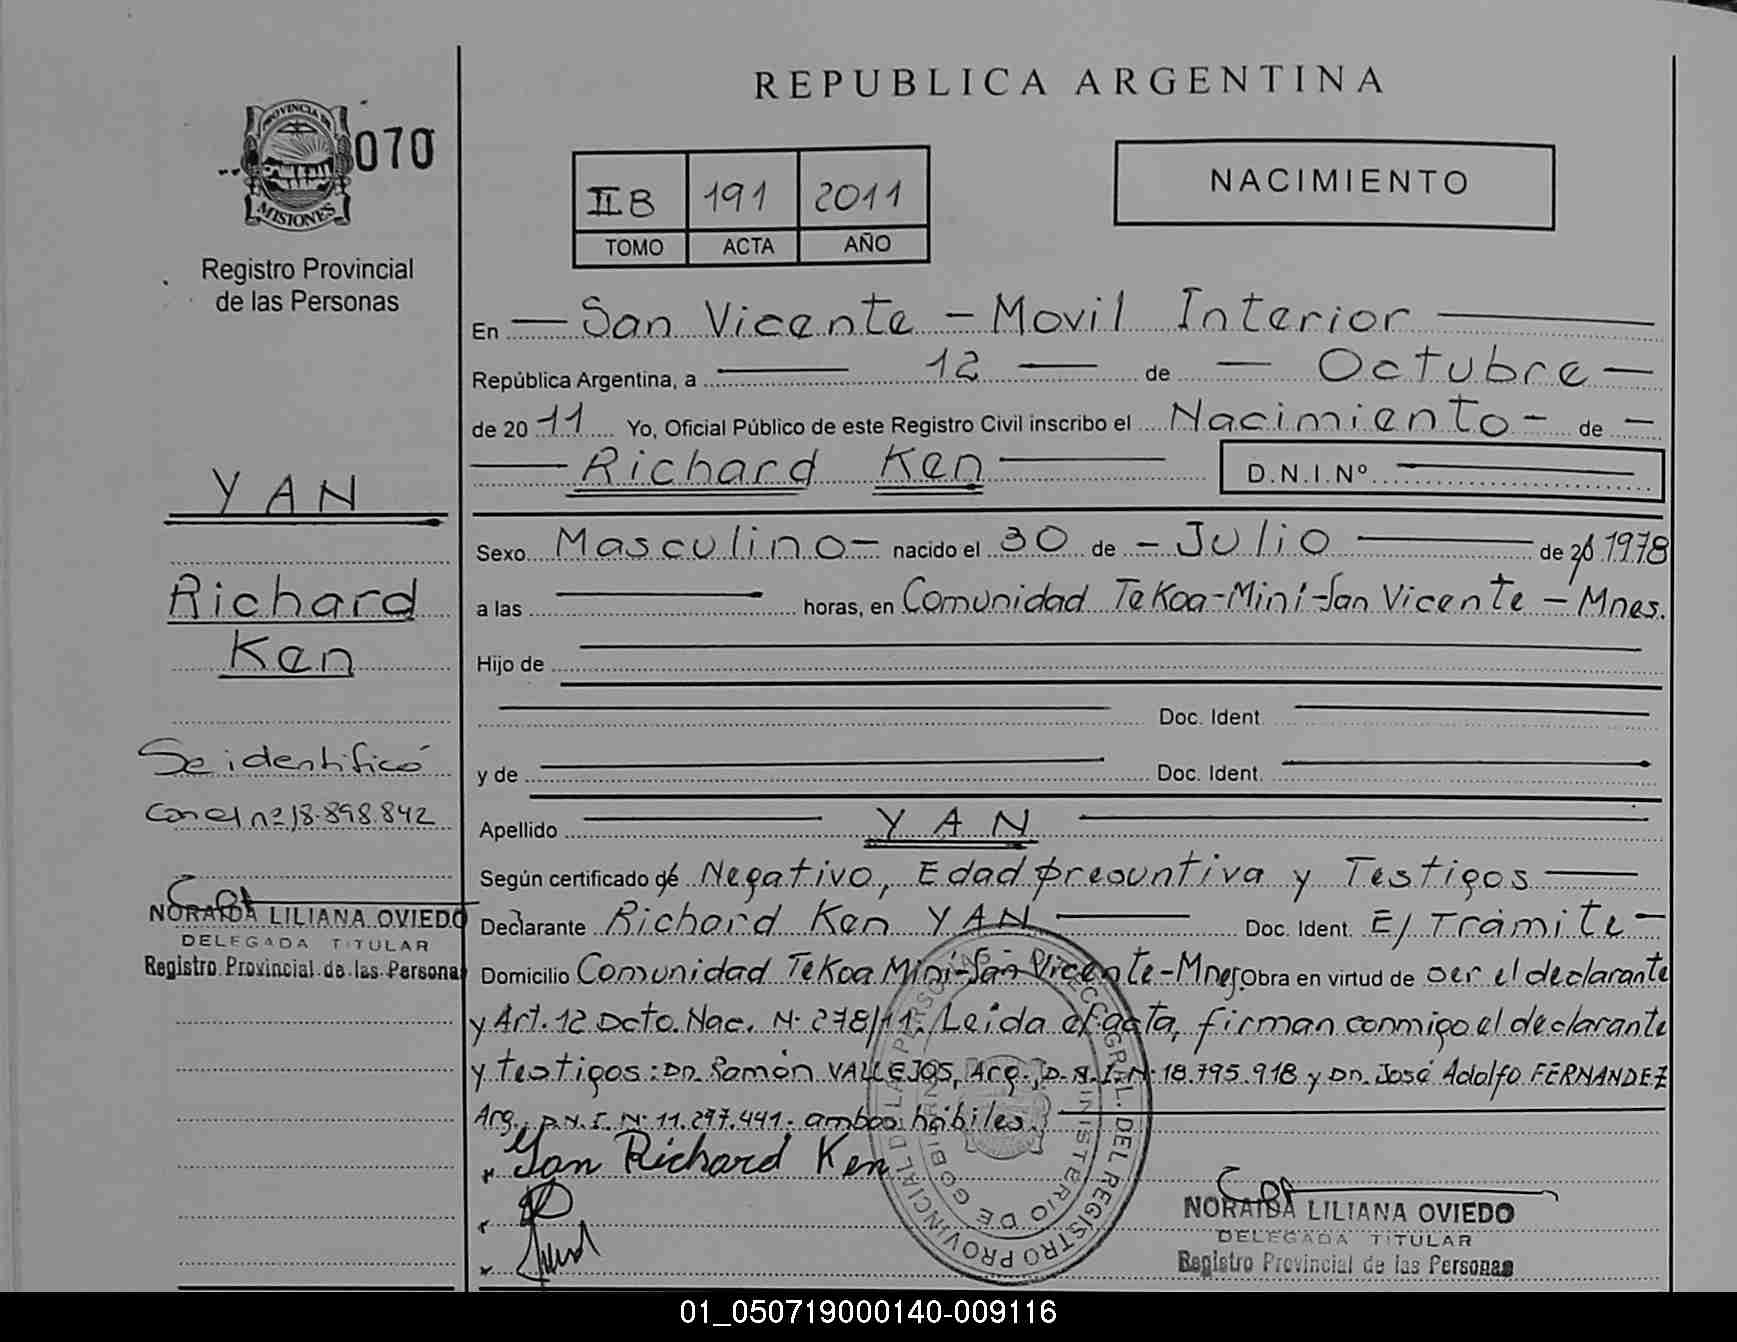 REPUBLICA ARGENTINA
PROVINCIA DE
MISIONES
070
Registro Provincial
de las Personas
II B 191 2011
TOMO ACTA AÑO
NACIMIENTO
YAN
Richard
Ken
Se identificó
con el nº 18.898.842
NORAIDA LILIANA OVIEDO
DELEGADA TITULAR
Registro Provincial de las Persona
En — San Vicente - Movil Interior —
República Argentina, a — 12 — de — Octubre —
de 20 11 Yo, Oficial Público de este Registro Civil inscribo el Nacimiento - de -
— Richard Ken — D.N.I.Nº —
Sexo Masculino - nacido el 30 de - Julio — de 20 1978
a las — horas, en Comunidad Tekoa-Miní-San Vicente - Mnes.
Hijo de —
— Doc. Ident. —
y de — Doc. Ident. —
Apellido — YAN —
Según certificado de Negativo, Edad presuntiva y Testigos —
Declarante Richard Ken YAN — Doc. Ident. E/ Trámite -
Domicilio Comunidad Tekoa Miní-San Vicente-Mnes. Obra en virtud de ser el declarante
y Art. 12 Dcto. Nac. Nº 278/11. Leída el acta, firman conmigo el declarante
y testigos: Dn. Ramón VALLEJOS, Arg., D.N.I. Nº 18.795.918 y Dn. José Adolfo FERNANDEZ
Arg., D.N.I. Nº 11.297.441. ambos hábiles. —
Yan Richard Ken
NORAIDA LILIANA OVIEDO
DELEGADA TITULAR
Registro Provincial de las Personas
01_050719000140-009116